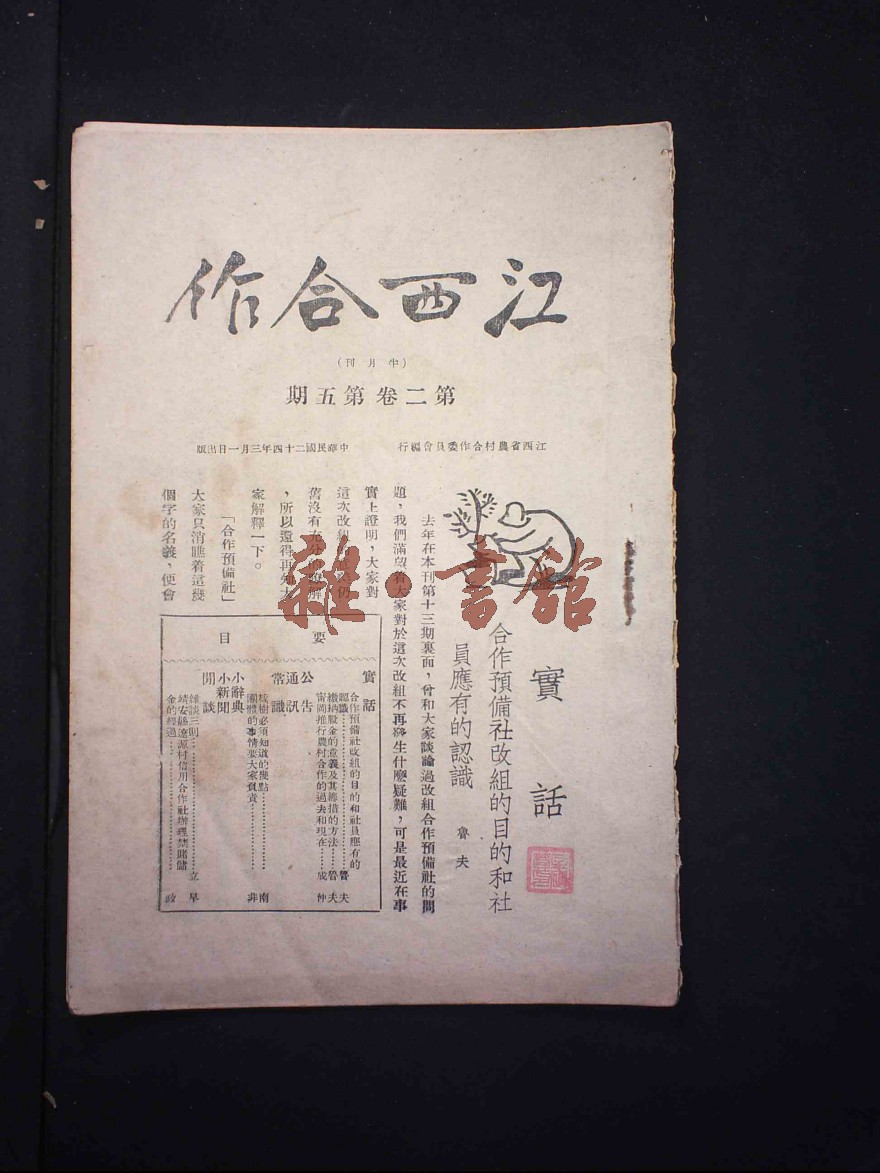 江西合作
（半月刊）
第二卷第五期
江西省農村合作委員會編行
中華民國二十四年三月一日出版
實話
合作預備社改組的目的和社
員應有的認識
魯夫
去年在本刊第十三期裏面，曾和大家談論過改組合作預備社的問
題，我們滿望着大家對於這次改組不再發生什麼疑難，可是最近在事
實上證明，大家對
這次改組的仍
舊沒有充分的瞭解
，所以還得再和大
家解釋一下。
「合作預備社」
大家只消瞧着這幾
個字的名義，便會
要目
實話
合作預備社改組的目的和社員應有的
認識……魯夫
繳納股金的意義及其籌措的方法……魯夫
公告
通訊
甯岡推行農村合作的過去和現在……成仲
常識
植樹必須知道的幾點……南
團體的事情要大家負責……非
小辭典
小新聞
閒談
雜談三則……立早
靖安縣遼源村信用合作社辦理禁賭儲
金的經過……政
雜·書館